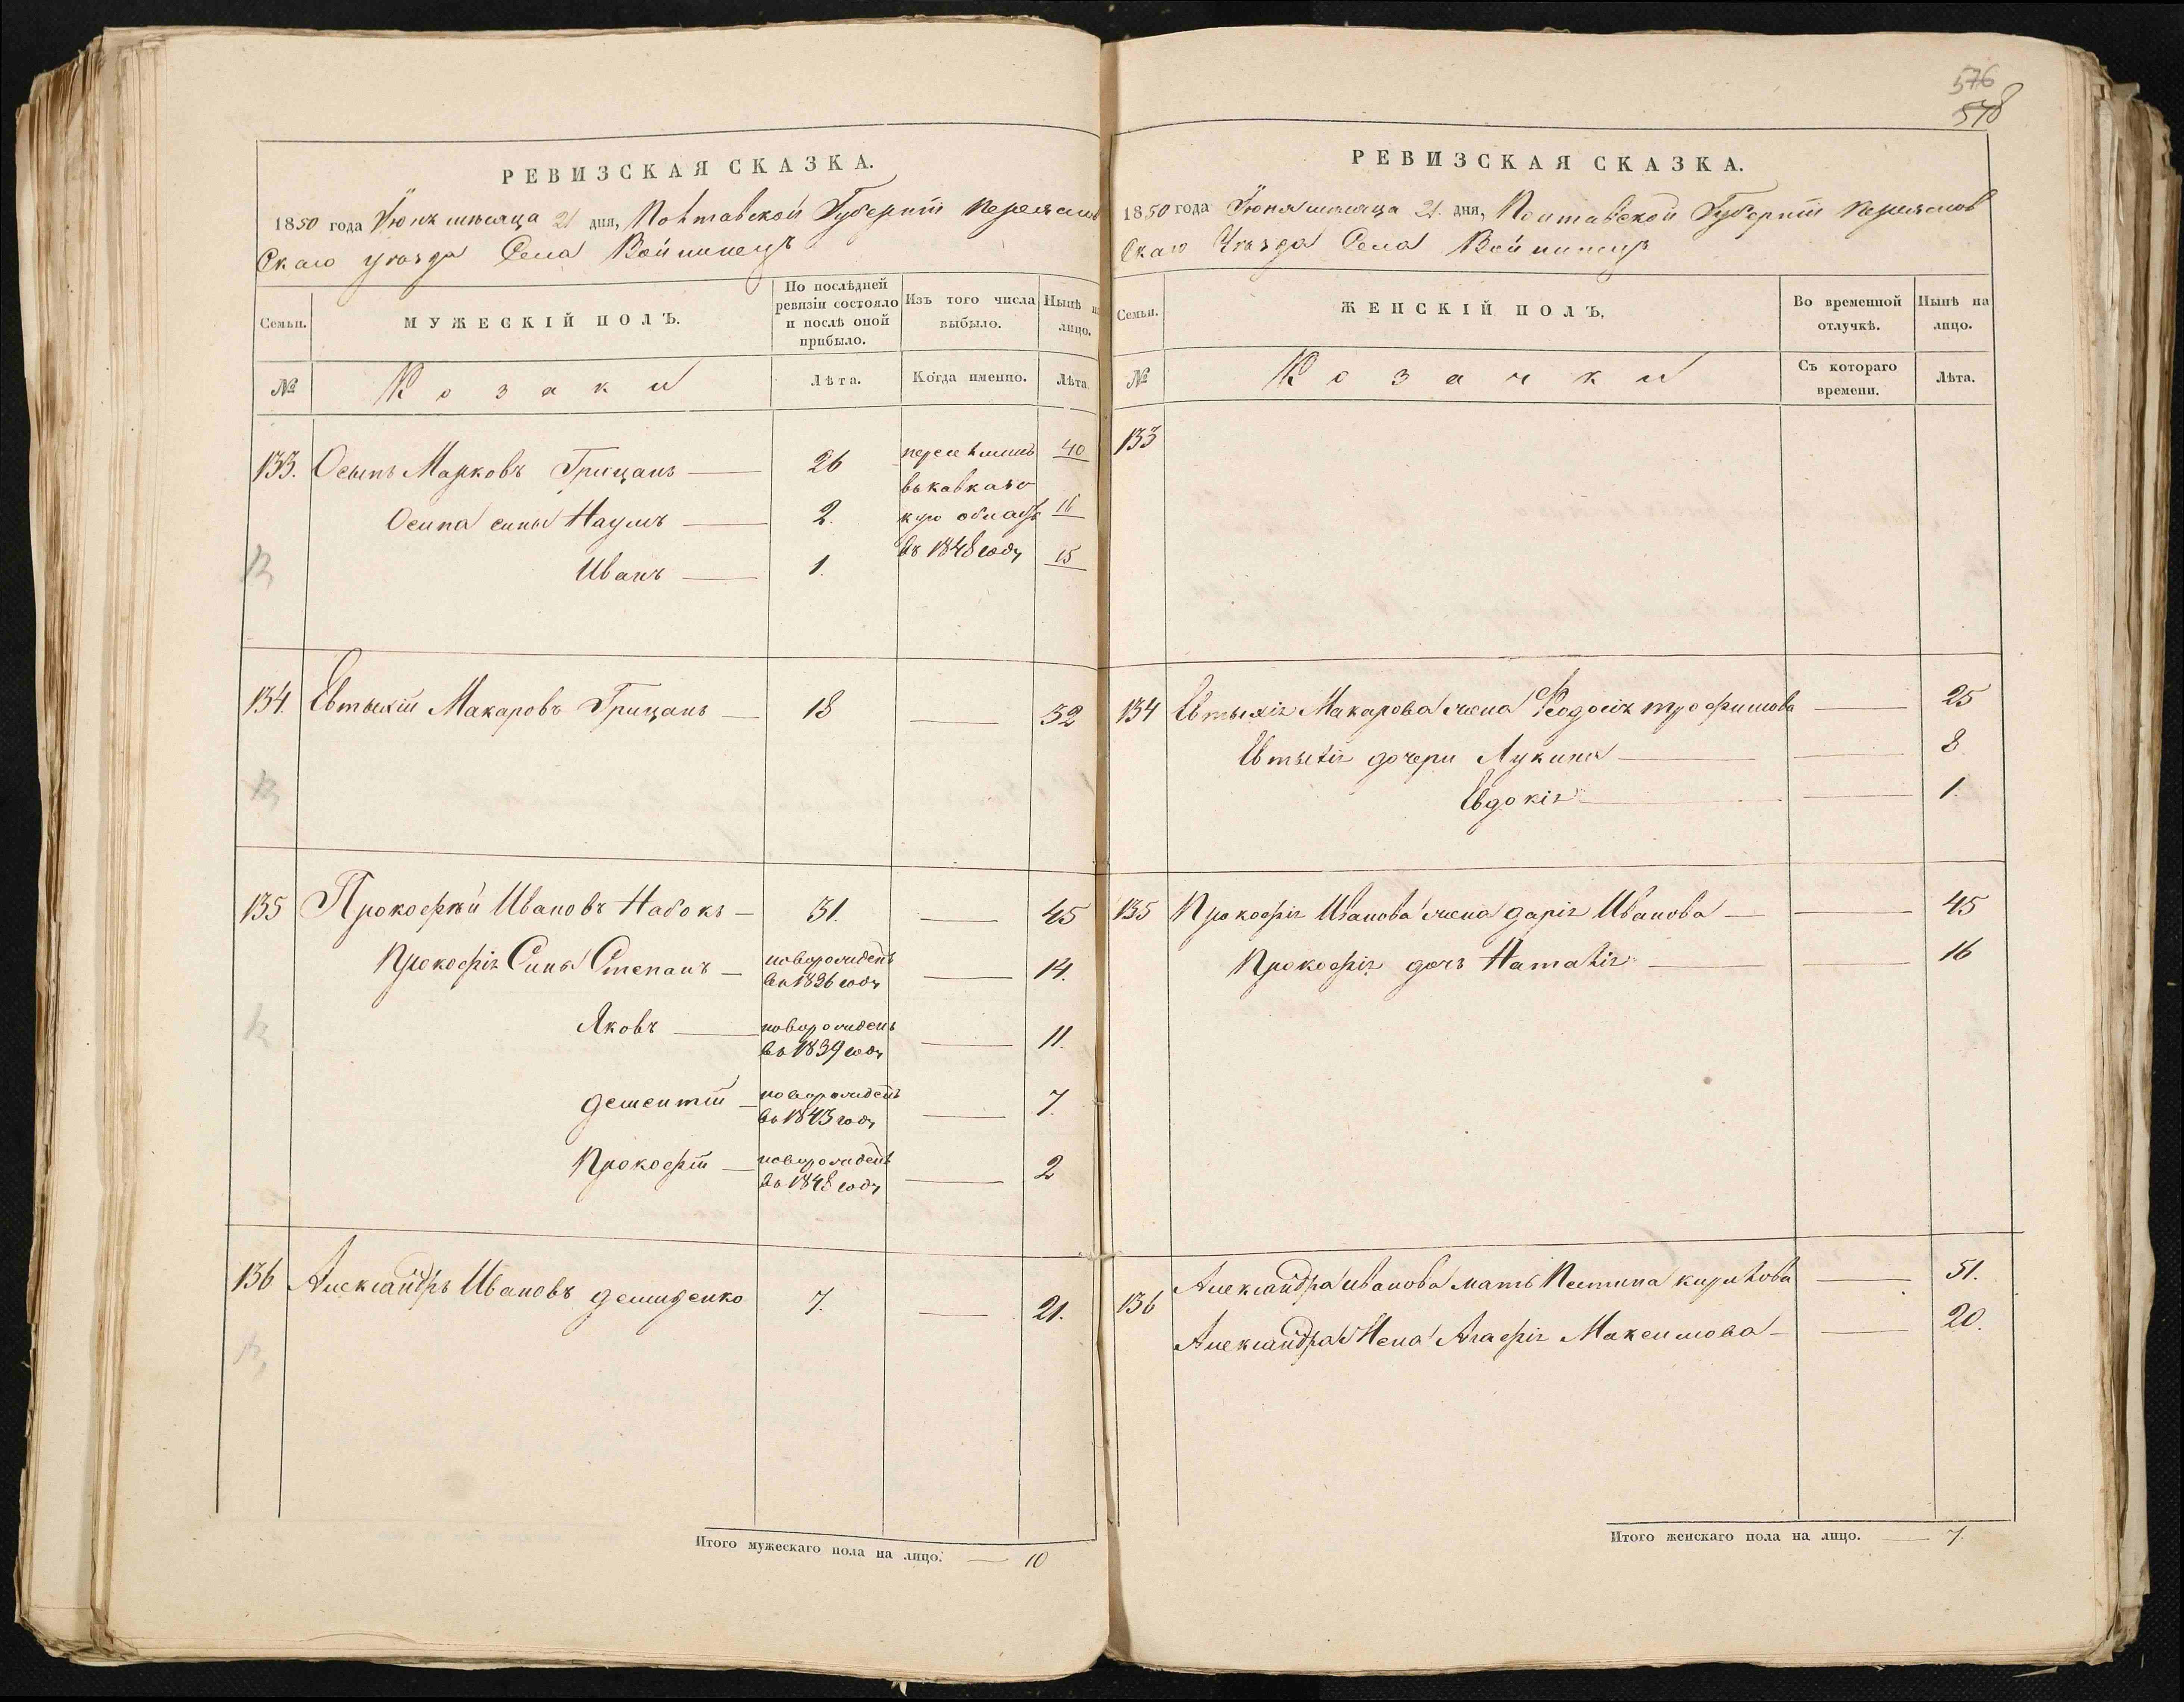 576
578
РЕВИЗСКАЯ СКАЗКА.
1850 года Іюня мѣсяца 21 дня, Полтавской Губерніи Переяслов
Скаго уѣзда Села Войнинецъ
Семьи.
МУЖЕСКІЙ ПОЛЪ.
По послѣдней ревизіи состояло и послѣ оной прибыло.
Изъ того числа выбыло.
Нынѣ на лицо.
№
Козаки
Лѣта.
Когда именно.
Лѣта.
133. Осыпъ Марковъ Грицанъ 26 переселился 40
въ кавказс
Осипа сины Наумъ 2. кую область 16
въ 1848 году
Иванъ 1. 15
134. Евтыхій Макаровъ Грицанъ 18 32
135 Прокофій Ивановъ Набокъ 31. 45
Прокофія Сины Степанъ новорожденъ 14.
въ 1836 году
Яковъ новорожденъ 11.
въ 1839 году
дементій новорожденъ 7.
въ 1843 году
Прокофій новорожденъ 2
въ 1848 году
136 Александръ Ивановъ демиденко 7. 21.
Итого мужескаго пола на лицо. 10
РЕВИЗСКАЯ СКАЗКА.
1850 года Іюня мѣсяца 21 дня, Полтавской Губерніи Переяслов
Скаго Уѣзда Села Войнинецъ
Семьи.
ЖЕНСКІЙ ПОЛЪ.
Во временной отлучкѣ.
Нынѣ на лицо.
№
Козачки
Съ котораго времени.
Лѣта.
133
134 Евтыхія Макарова жена Феодосія трофимова 25
Евтыхія дочери Лукина 8
Евдокія 1.
135 Прокофія Иванова жена дарія Иванова 45
Прокофія дочь Наталія 16
Александра иванова мать Пестина кирилова 51.
136
Александра Жена Агафія Максимова 20.
Итого женскаго пола на лицо. 7.